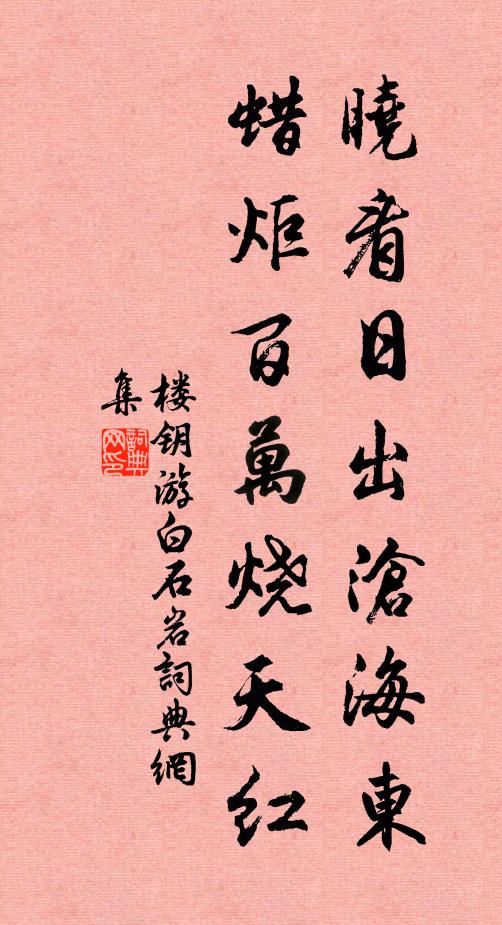 曉看日出滄海東
蜡炬百萬烧天红
楼钥游白石岩詞典網
集
詞典网印